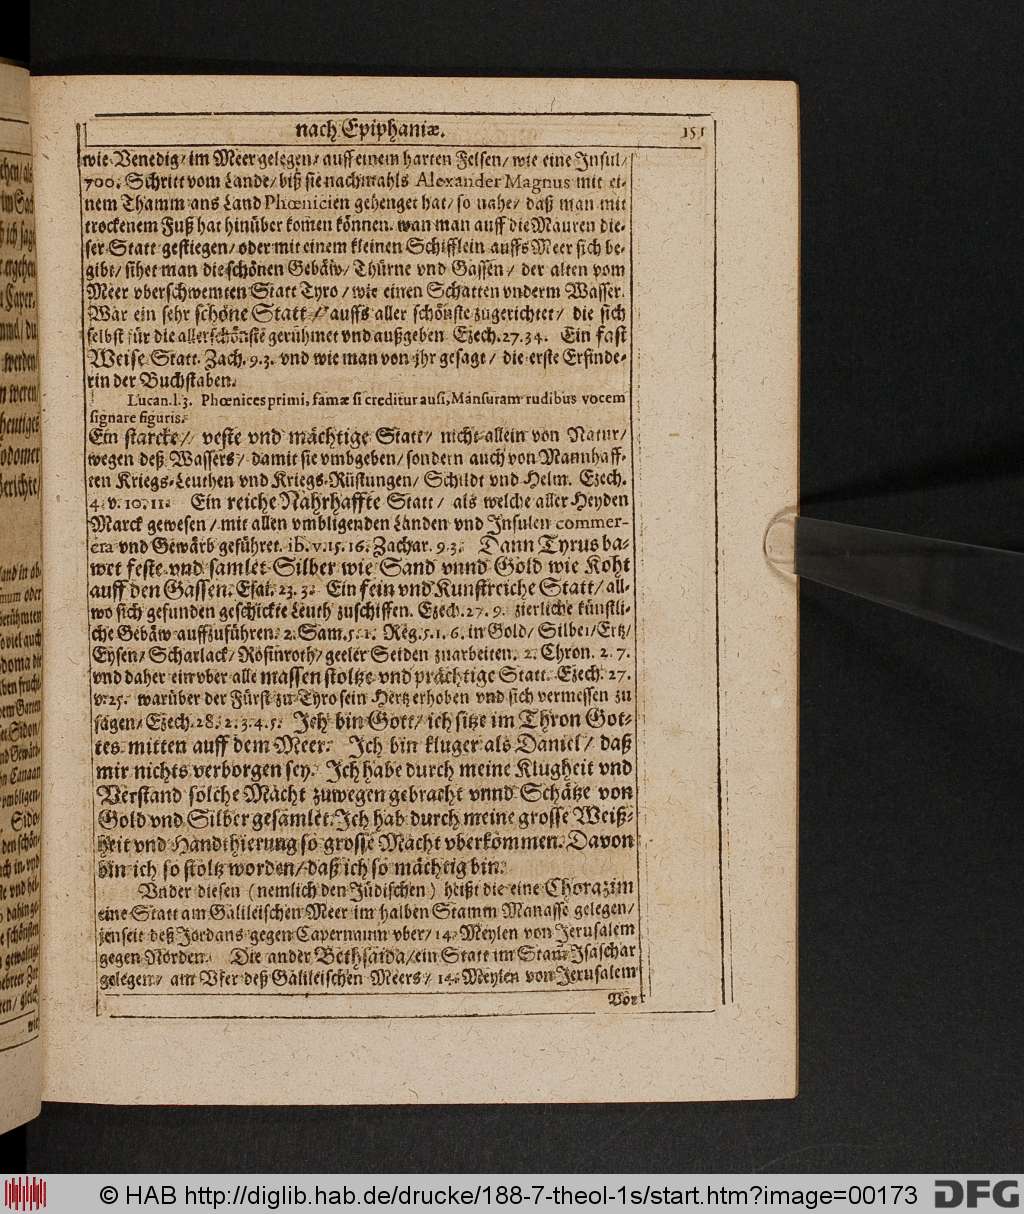 nach Epiphaniæ. 151
wie Venedig/ im Meer gelegen/ auff einem harten Felsen/ wie eine Insul/
700. Schritt vom Lande/ biß sie nachmahls Alexander Magnus mit ei-
nem Thamm ans Land Phœnicien gehenget hat/ so nahe/ daß man mit
trockenem Fuß hat hinüber komen können. wan man auff die Mauren die-
ser Statt gestiegen/ oder mit einem kleinen Schifflein auffs Meer sich be-
gibt/ sihet man die schönen Gebäw/ Thürne vnd Gassen/ der alten vom
Meer vberschwemten Statt Tyro/ wie einen Schatten vnderm Wasser.
War ein sehr schöne Statt/ auffs aller schönste zugerichtet/ die sich
selbst für die allerschönste gerühmet vnd außgeben Ezech. 27. 34. Ein fast
Weise Statt. Zach. 9. 3. vnd wie man von jhr gesagt/ die erste Erfinde-
rin der Buchstaben.
Lucan. l. 3. Phœnices primi, famæ si creditur ausi, Mansuram rudibus vocem
signare figuris.
Ein starcke/ veste vnd mächtige Statt/ nicht allein von Natur/
wegen deß Wassers/ damit sie vmbgeben/ sondern auch von Mannhaff-
ten Kriegs-Leuthen vnd Kriegs-Rüstungen/ Schildt vnd Helm. Ezech.
4. v. 10. 11. Ein reiche Nahrhaffte Statt/ als welche aller Heyden
Marck gewesen/ mit allen vmbligenden Landen vnd Insulen commer-
cia vnd Gewärb geführet. ib. v. 15. 16. Zachar. 9. 3. Dann Tyrus ba-
wet feste vnd samlet Silber wie Sand vnnd Gold wie Koht
auff den Gassen. Esai. 23. 3. Ein fein vnd Kunstreiche Statt/ all-
wo sich gefunden geschickte Leuth zuschiffen. Ezech. 27. 9. zierliche künstli-
che Gebäw auffzuführen. 2. Sam. 5. 1. Reg. 5. 1. 6. in Gold/ Silber/ Ertz/
Eysen/ Scharlack/ Rosinroth/ geeler Seiden zuarbeiten. 2. Chron. 2. 7.
vnd daher ein vber alle massen stoltze vnd prächtige Statt. Ezech. 27.
v. 25. warüber der Fürst zu Tyro sein Hertz erhoben vnd sich vermessen zu
sagen/ Ezech. 28. 2. 3. 4. 5. Ich bin Gott/ ich sitze im Thron Got-
tes mitten auff dem Meer. Ich bin kluger als Daniel/ daß
mir nichts verborgen sey. Ich habe durch meine Klugheit vnd
Verstand solche Macht zuwegen gebracht vnnd Schätze von
Gold vnd Silber gesamlet. Ich hab durch meine grosse Weiß-
heit vnd Handthierung so grosse Macht vberkommen. Davon
bin ich so stoltz worden/ daß ich so mächtig bin.
Vnder diesen (nemlich den Jüdischen) heißt die eine Chorazim
eine Statt am Galileischen Meer im halben Stamm Manasse gelegen/
jenseit deß Jordans gegen Capernaum vber/ 14. Meylen von Jerusalem
gegen Norden. Die ander Bethsaida/ ein Statt im Stam Isaschar
gelegen/ am Vfer deß Galileischen Meers/ 14. Meylen von Jerusalem
Vor
© HAB http://diglib.hab.de/drucke/188-7-theol-1s/start.htm?image=00173 DFG